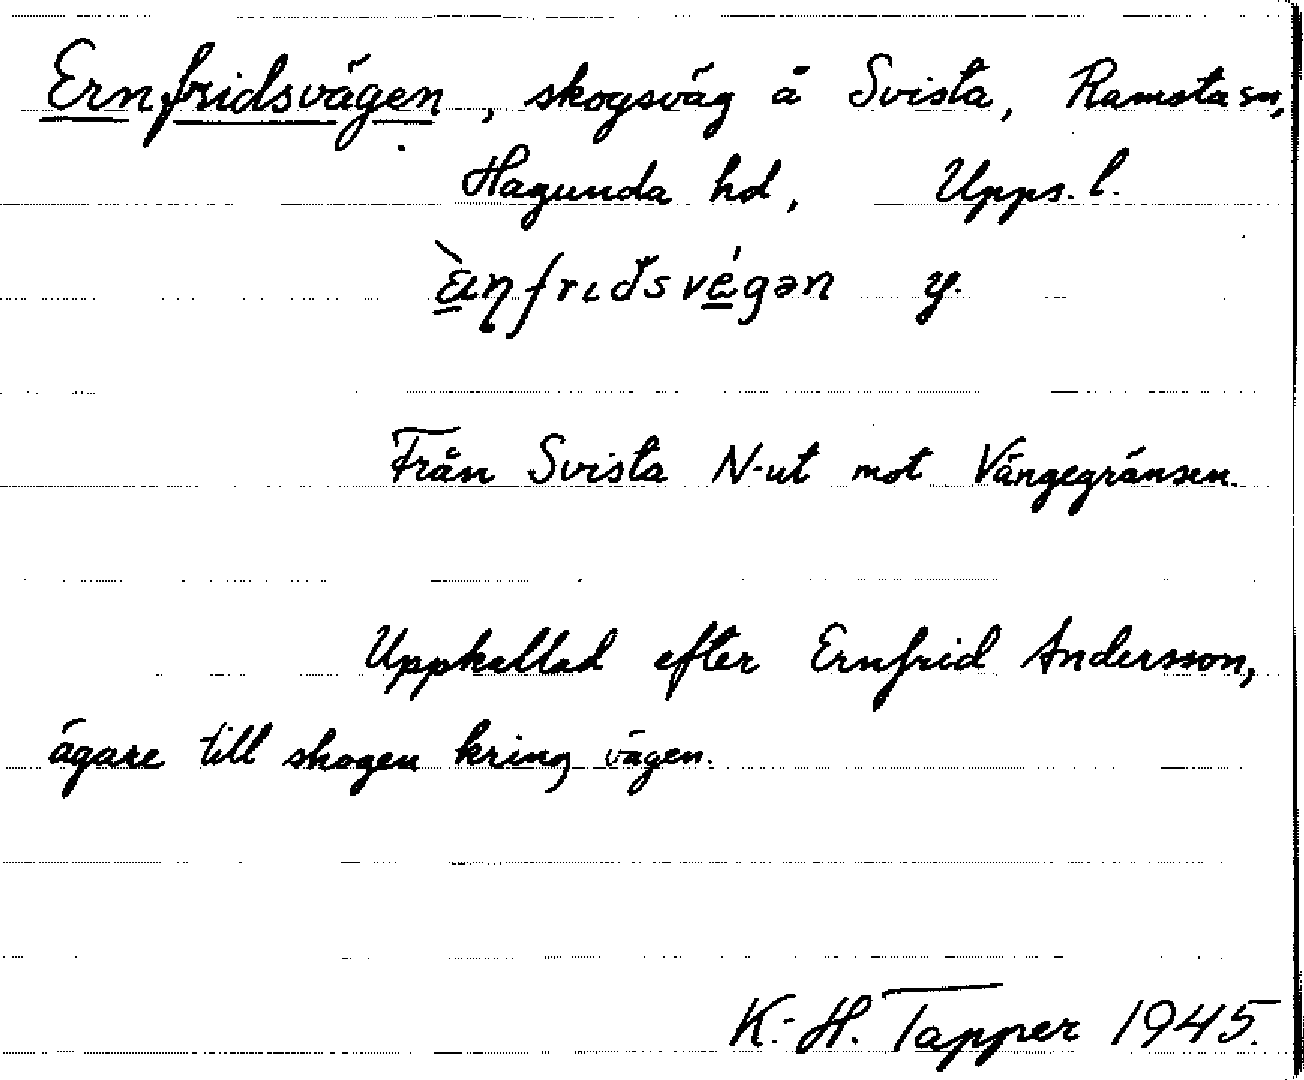 Ernfridsvägen, skogsväg å Svista, Ramsta sn,
Hagunda hd, Upps. l.
y.
Från Svista N-ut mot Vängegränsen.
Uppkallad efter Ernfrid Andersson,
ägare till skogen kring vägen.
K.-H. Tapper 1945.